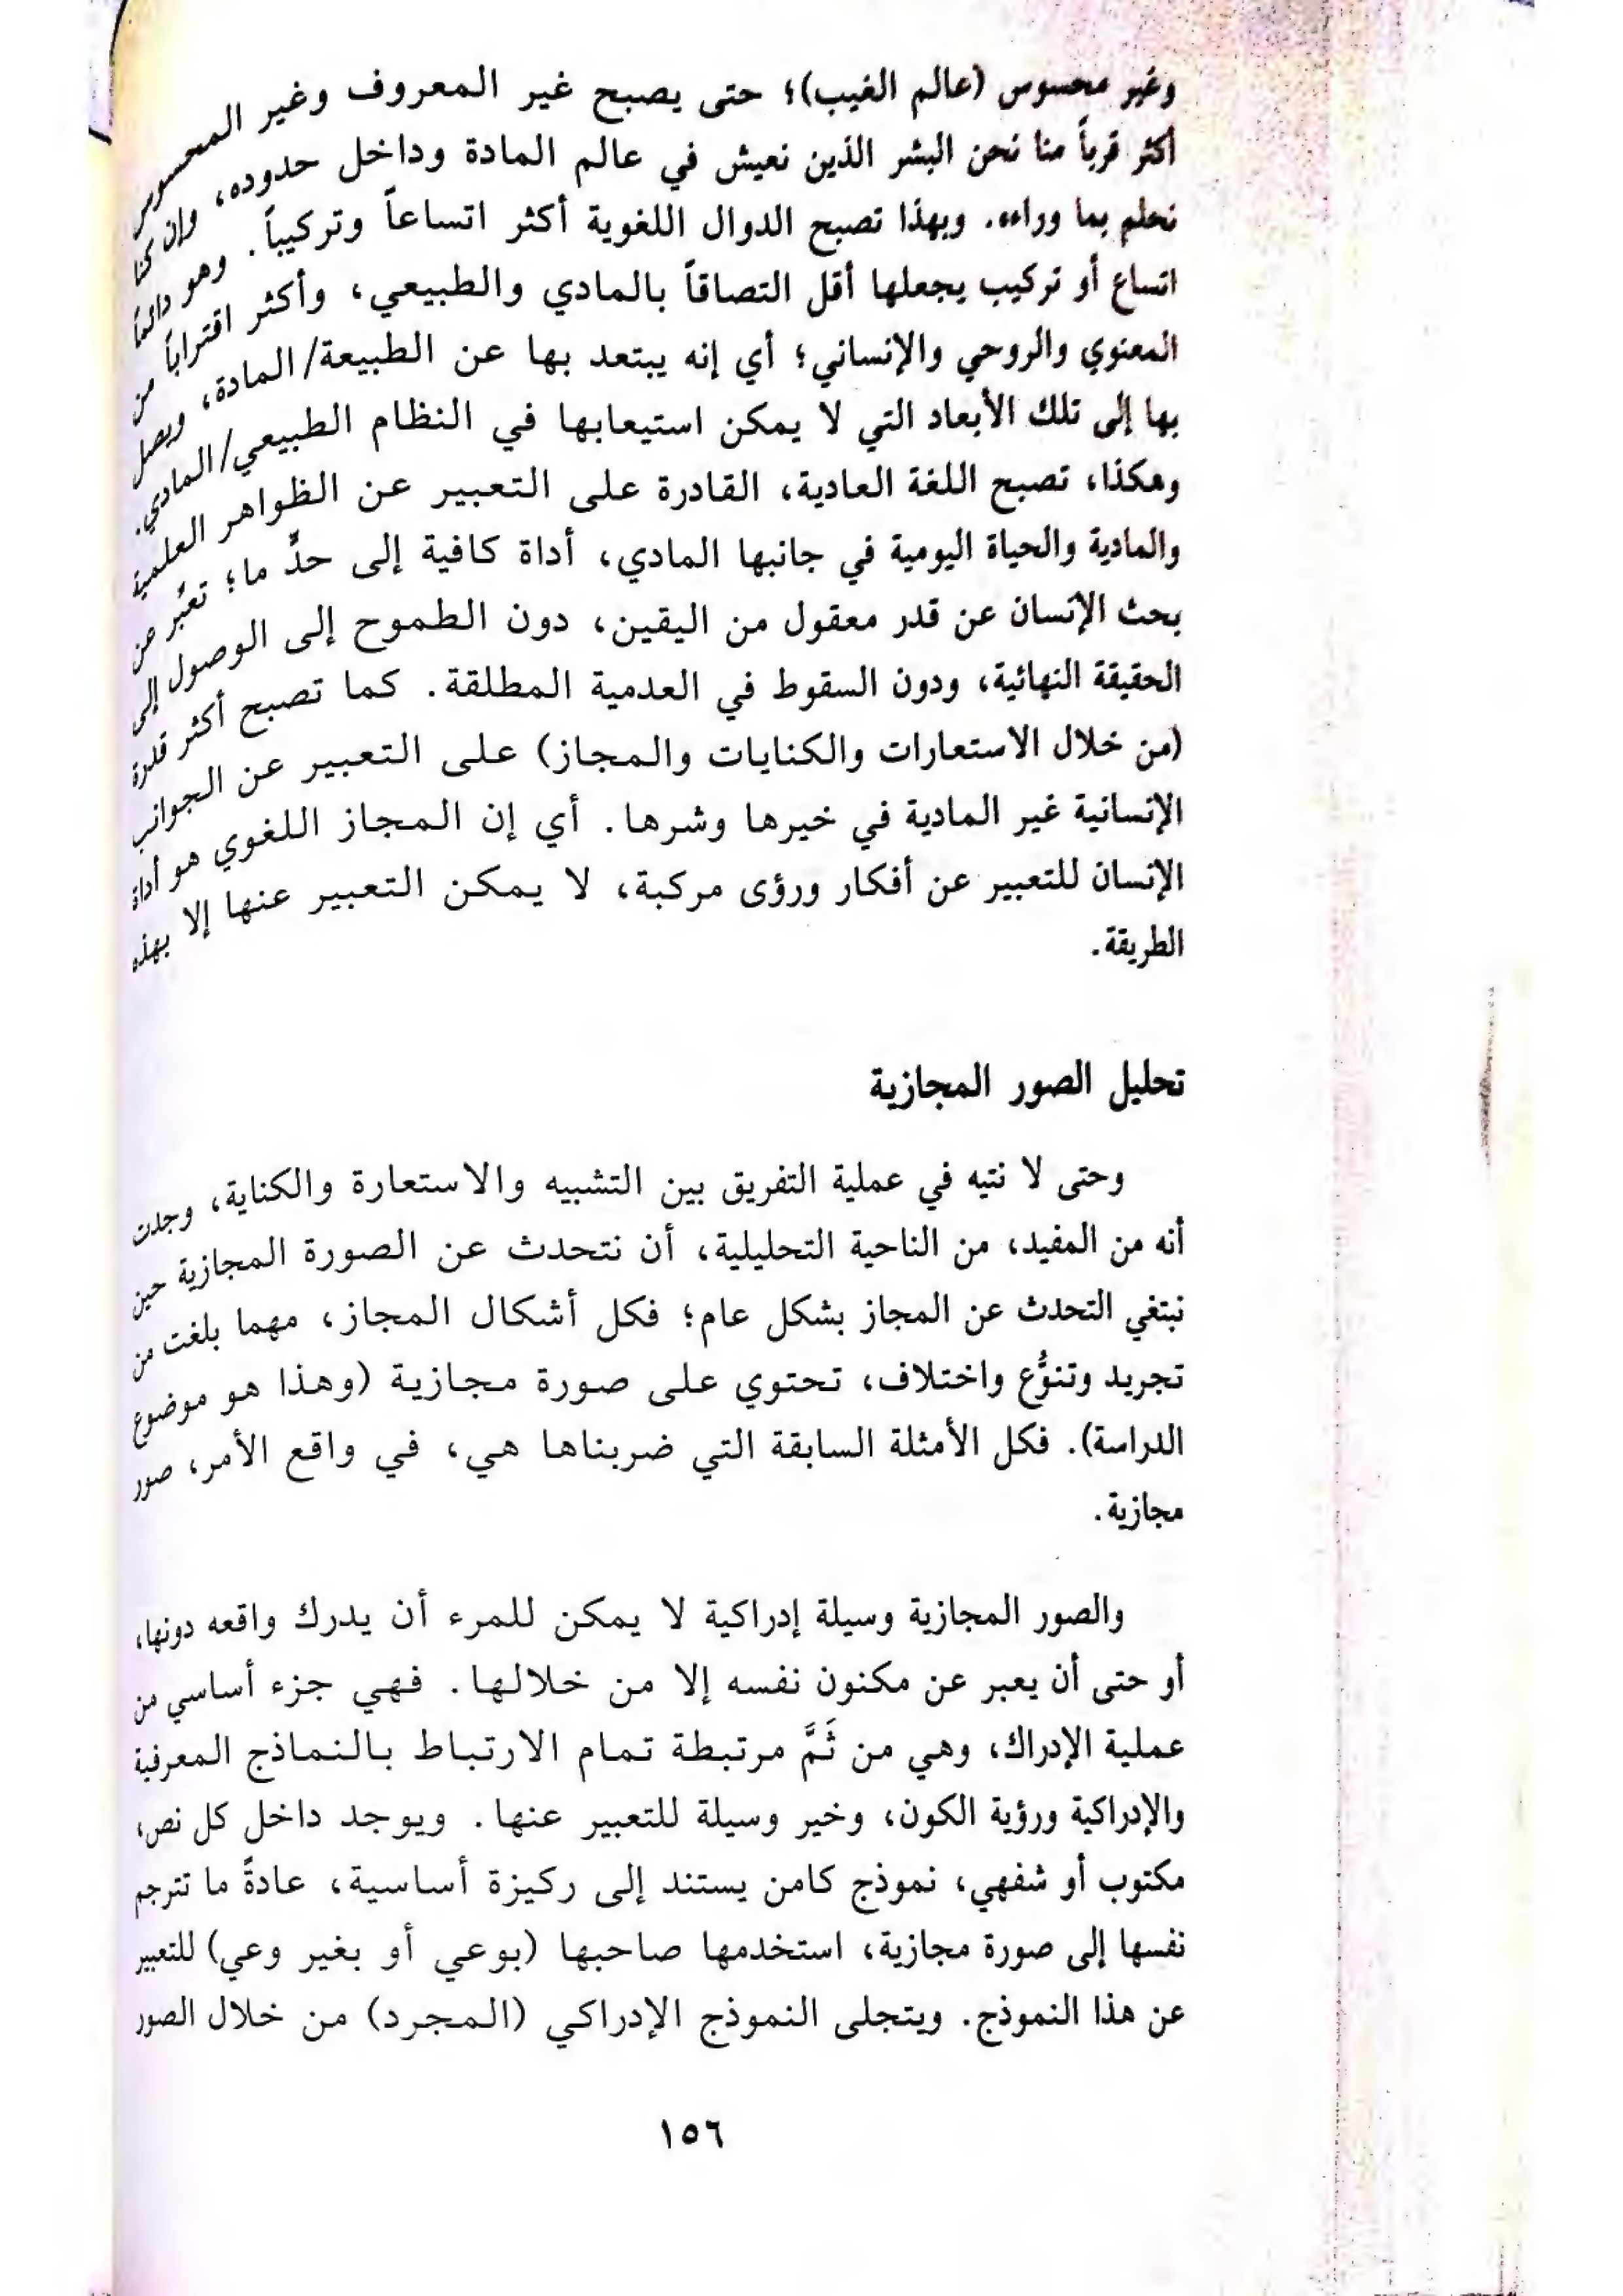 وغير محسوس (عالم الغيب)؛ حتى يصبح غير المعروف وغير المحسوس
أكثر قرباً منا نحن البشر الذين نعيش في عالم المادة وداخل حدوده، وإن كنا
نحلم بما وراءه. وبهذا تصبح الدوال اللغوية أكثر اتساعاً وتركيباً. وهو دائماً
اتساع أو تركيب يجعلها أقل التصاقاً بالمادي والطبيعي، وأكثر اقتراباً من
المعنوي والروحي والإنساني؛ أي إنه يبتعد بها عن الطبيعة/المادة، ويصل
بها إلى تلك الأبعاد التي لا يمكن استيعابها في النظام الطبيعي/المادي.
وهكذا، تصبح اللغة العادية، القادرة على التعبير عن الظواهر العلمية
والمادية والحياة اليومية في جانبها المادي، أداة كافية إلى حدٍّ ما؛ تعبِّر عن
بحث الإنسان عن قدر معقول من اليقين، دون الطموح إلى الوصول إلى
الحقيقة النهائية، ودون السقوط في العدمية المطلقة. كما تصبح أكثر قدرة
(من خلال الاستعارات والكنايات والمجاز) على التعبير عن الجوانب
الإنسانية غير المادية في خيرها وشرها. أي إن المجاز اللغوي هو أداة
الإنسان للتعبير عن أفكار ورؤى مركبة، لا يمكن التعبير عنها إلا بهذه
الطريقة.
تحليل الصور المجازية
وحتى لا نتيه في عملية التفريق بين التشبيه والاستعارة والكناية، وجدت
أنه من المفيد، من الناحية التحليلية، أن نتحدث عن الصورة المجازية حين
نبتغي التحدث عن المجاز بشكل عام؛ فكل أشكال المجاز، مهما بلغت من
تجريد وتنوُّع واختلاف، تحتوي على صورة مجازية (وهذا هو موضوع
الدراسة). فكل الأمثلة السابقة التي ضربناها هي، في واقع الأمر، صور
مجازية.
والصور المجازية وسيلة إدراكية لا يمكن للمرء أن يدرك واقعه دونها،
أو حتى أن يعبر عن مكنون نفسه إلا من خلالها. فهي جزء أساسي من
عملية الإدراك، وهي من ثَمَّ مرتبطة تمام الارتباط بالنماذج المعرفية
والإدراكية ورؤية الكون، وخير وسيلة للتعبير عنها. ويوجد داخل كل نص،
مكتوب أو شفهي، نموذج كامن يستند إلى ركيزة أساسية، عادةً ما تترجم
نفسها إلى صورة مجازية، استخدمها صاحبها (بوعي أو بغير وعي) للتعبير
عن هذا النموذج. ويتجلى النموذج الإدراكي (المجرد) من خلال الصور
١٥٦